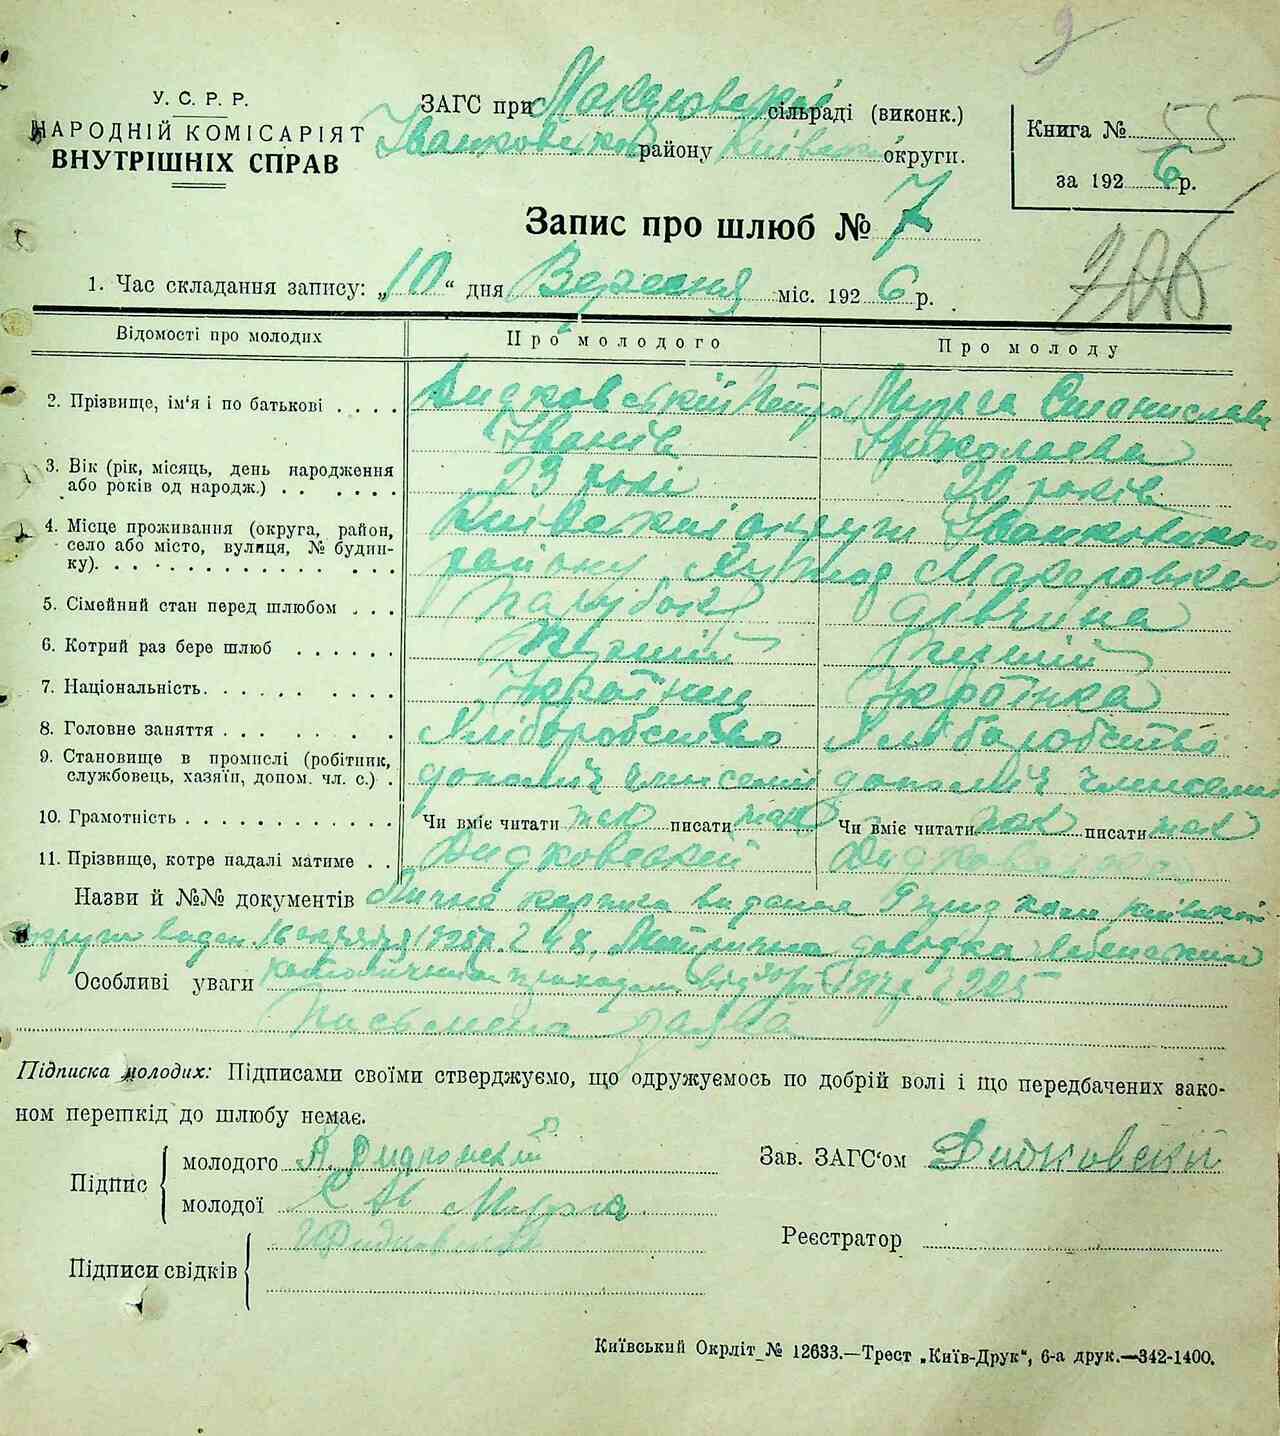 У. С. Р. Р.
НАРОДНІЙ КОМІСАРІЯТ
ВНУТРІШНІХ СПРАВ
ЗАГС при сільраді (виконк.)
Іванковском району Київської округи.
Книга № 55
за 1926 р.
Запис про шлюб № 7
1. Час складання запису: „10“ дня Вересня міс. 1926 р.
Відомості про молодих Про молодого Про молоду
2. Прізвище, ім'я і по батькові . . . . Петро Мурга Станислава
Іванів Николаева
3. Вік (рік, місяць, день народження
або років од народж.) . . . . . . 23 рокі 20 років
4. Місце проживання (округа, район,
село або місто, вулиця, № будин-
ку). . . . . . . . . . . . . . . Київскої округи Іванковского
району Хутор
5. Сімейний стан перед шлюбом . . . парубок дівчина
6. Котрий раз бере шлюб . . . . . . Перший Перший
7. Національність. . . . . . . . . . Українец Українка
8. Головне заняття . . . . . . . . . Хліборобство Хліборобство
9. Становище в промислі (робітник,
службовець, хазяїн, допом. чл. с.) . допоміч член семії допоміч член семии
10. Грамотність . . . . . . . . . . . . Чи вміє читати так писати так Чи вміє читати так писати так
11. Прізвище, котре надалі матиме . . Дидковський
Назви й №№ документів Лична карт видання
округи видан. 16 Метрична довідка
Особливі уваги
Письмена заява
Підписка молодих: Підписами своїми стверджуємо, що одружуємось по добрій волі і що передбачених зако-
ном перешкід до шлюбу немає.
Підпис молодого Дидковский
молодої Мурга
Зав. ЗАГС'ом Дидковский
Підписи свідків
Реєстратор
Київський Окрліт № 12633.—Трест „Київ-Друк“, 6-а друк.—342-1400.